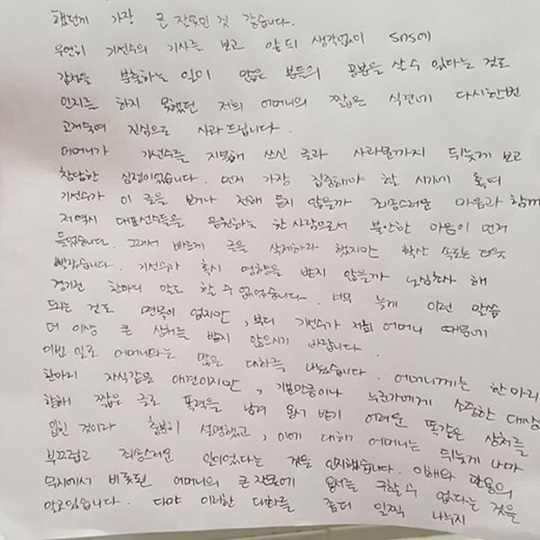 했던게 가장 큰 잘못인 것 같습니다.
우연히 기선수의 기사를 보고 앞뒤 생각없이 SNS에
감정을 분출하는 일이 많은 분들의 공분을 살 수 있다는 것도
인지를 하지 못했던 저희 어머니의 짧은 식견에 다시한번
고개숙여 진심으로 사과드립니다.
어머니가 기선수를 지목해 쓰신 글과 사과문까지 뒤늦게 보고
참담한 심정이었습니다. 먼저 가장 집중해야 할 시기에 혹여
기선수가 이 글을 보거나 전해 듣지 않을까 죄송스러운 마음과 함께
저역시 대표선수들을 응원하는 한 사람으로서 불안한 마음이 먼저
들었습니다. 그래서 바르게 글을 삭제하라 했지만 확산 속도는 더욱
빨랐습니다. 기선수가 혹시 영향을 받지 않을까 노심초사 해
경기전 한마디 말도 할 수 없었습니다. 너무 늦게 이런 말씀
드리는 것도 면목이 없지만, 부디 기선수가 저희 어머니 때문에
더 이상 큰 상처를 받지 않으시기 바랍니다.
이번 일로 어머니와는 많은 대화를 나눴습니다. 어머니께는 한마리
한마리 자식같은 애견이지만, 기본만큼이나 누군가에게 소중한 대상
향해 짧은 글로 폭력을 남겨 용서 받기 어려운 똑같은 상처를
입힌 것이라 충분히 설명했고, 이에 대해 어머니는 뒤늦게 나마
부끄럽고 죄송스러운 일이었다는 것을 인지했습니다. 이해와 관용의
무지에서 비롯된 어머니의 큰 잘못에 용서를 구할 수 없다는 것을
알고있습니다. 다만 이러한 대화를 좀더 일찍 나누지